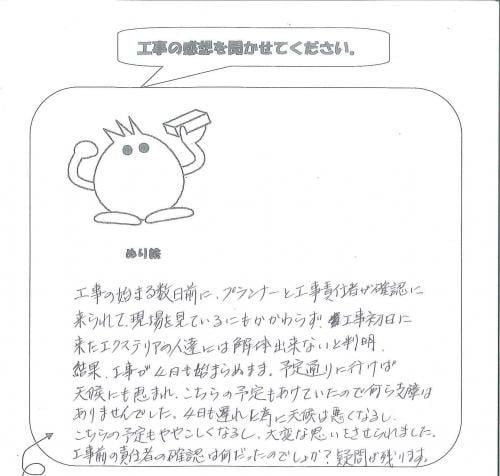 工事の感想を聞かせてください。
ぬり絵
工事の始まる数日前に、プランナーと工事責任者が確認に
来られて、現場を見ているにもかかわらず、工事初日に
来たエクステリアの人達には解体出来ないと判明。
結果、工事が4日も始まらぬまま。予定通りに行けば
天候にも恵まれ、こちらの予定もあけていたので何ら支障は
ありませんでした。4日も遅れた為に天候は悪くなるし、
こちらの予定もややこしくなるし、大変な思いをさせられました。
工事前の責任者の確認は何だったのでしょか？疑問が残ります。